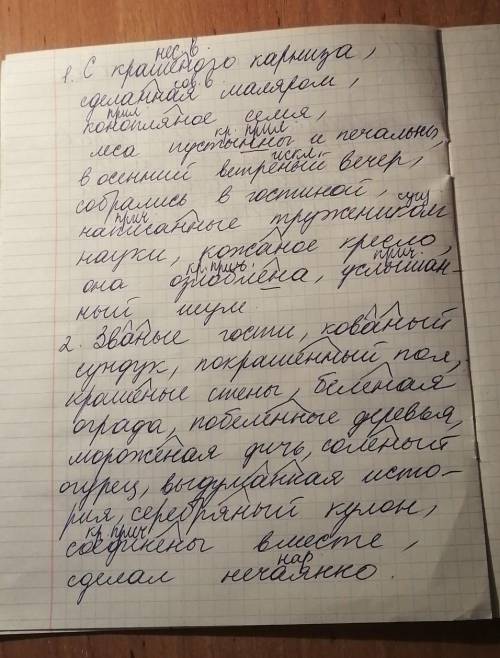 нес. в.
1. С крашеного карниза,
сов. в
сделанная маляром,
прил
конопляное семя,
кр. прил.
леса пустынны и печальны,
искл.
в осенний ветреный вечер,
собрались в гостиной, сущ
прич
написанные тружеником
науки, кожаное кресло,
кр. прич. прич.
она озлоблена, услышан-
ный шум.
2. Званые гости, кованый
сундук, покрашенный пол,
крашеные стены, беленая
ограда, побеленные деревья,
мороженая дичь, соленый
огурец, выдуманная исто-
рия, серебряный кулон,
кр. прич
соединены вместе,
нар
сделал нечаянно.